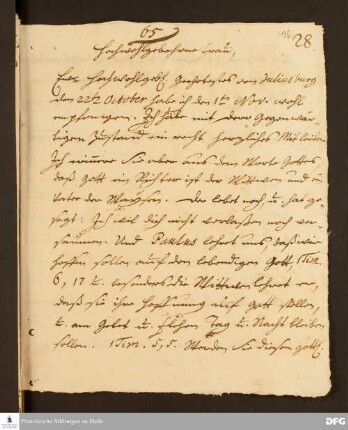 65
28.
Hochwohlgebohrne Frau,
Euer Hochwohlgeb. Geehrtestes von Juliusburg
den 22ten October habe ich den 1ten Nov. wohl
empfangen. Ich habe mit dero Gegenwär-
tigen Zustand ein recht herzliches Mitleiden.
Ich erinnere Sie aber aus dem Worte Gottes,
daß Gott ein Richter ist der Wittwen und ein
Vater der Waysen. Der lebet noch, u. hat ge-
sagt: Ich wil dich nicht verlaßen noch ver-
säumen. Und Paulus lehret uns, daß wir
hoffen sollen auf den lebendigen Gott, 1 Tim.
6, 17 u. besonders die Wittwen lehret er,
daß sie ihre Hoffnung auf Gott stellen,
u. am Gebet u. Flehen Tag u. Nacht bleiben
sollen. 1 Tim. 5, 5. Werden Sie diesen göttl.
Franckesche Stiftungen zu Halle
DFG